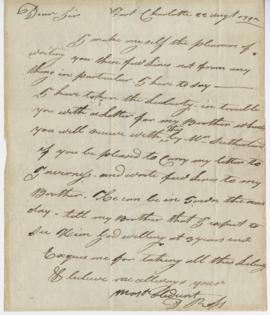 Dear Sir Fort Charlotte 22 Augt
I make myself the pleasure of
writing you these few lines not from any
thing in particular I have to say —
I have taken the Liberty in trouble
you with a letter for my Brother which
you will receive with this by Mr. Sutherland
if you be pleased to Carry my letter to
Inverness and write few lines to my
Brother. He can be in Town the next
day - tell my Brother that I expect to
see Him God willing at 3 years end
Excuse me for taking all this Liberty
& believe me allways your
most Obedient
Ross